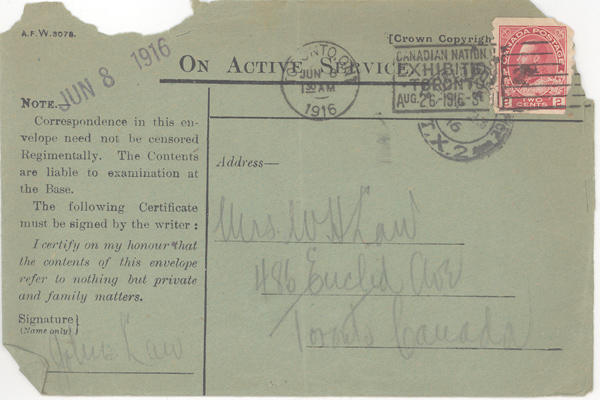 A.F.W. 3078.
[Crown Copyrigh
JUN 8 1916
ON ACTIVE SERVICE
TORONTO, ON
JUN 8
1 30 AM
1916
CANADIAN NATION
EXHIBITI
TORONTO
AUG. 26-1916-S
CANADA POSTAGE
2
TWO CENTS
T.X.2
16
NOTE.—
Correspondence in this en-
velope need not be censored
Regimentally. The Contents
are liable to examination at
the Base.
The following Certificate
must be signed by the writer :
I certify on my honour that
the contents of this envelope
refer to nothing but private
and family matters.
Signature
(Name only)
Law
Address—
Mrs. W H Law
486 Euclid Ave
Toronto Canada